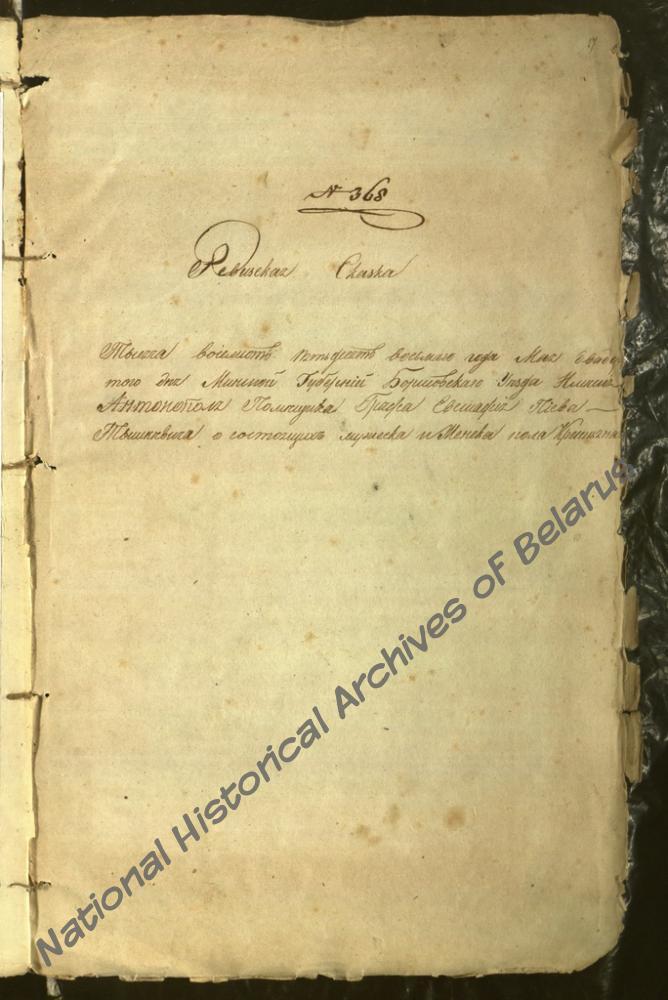 17
№ 368
Ревизская Сказка
Тысяча восемсотъ пятьдесятъ восьмаго года Мая
того дня Минской Губерній Борисовскаго Уѣзда Имѣнія
Антонополя Помѣщика Графа Евстафій Піева
Тышкевича о состоящихъ мужеска и Женска пола Крестьяна
National Historical Archives of Belarus